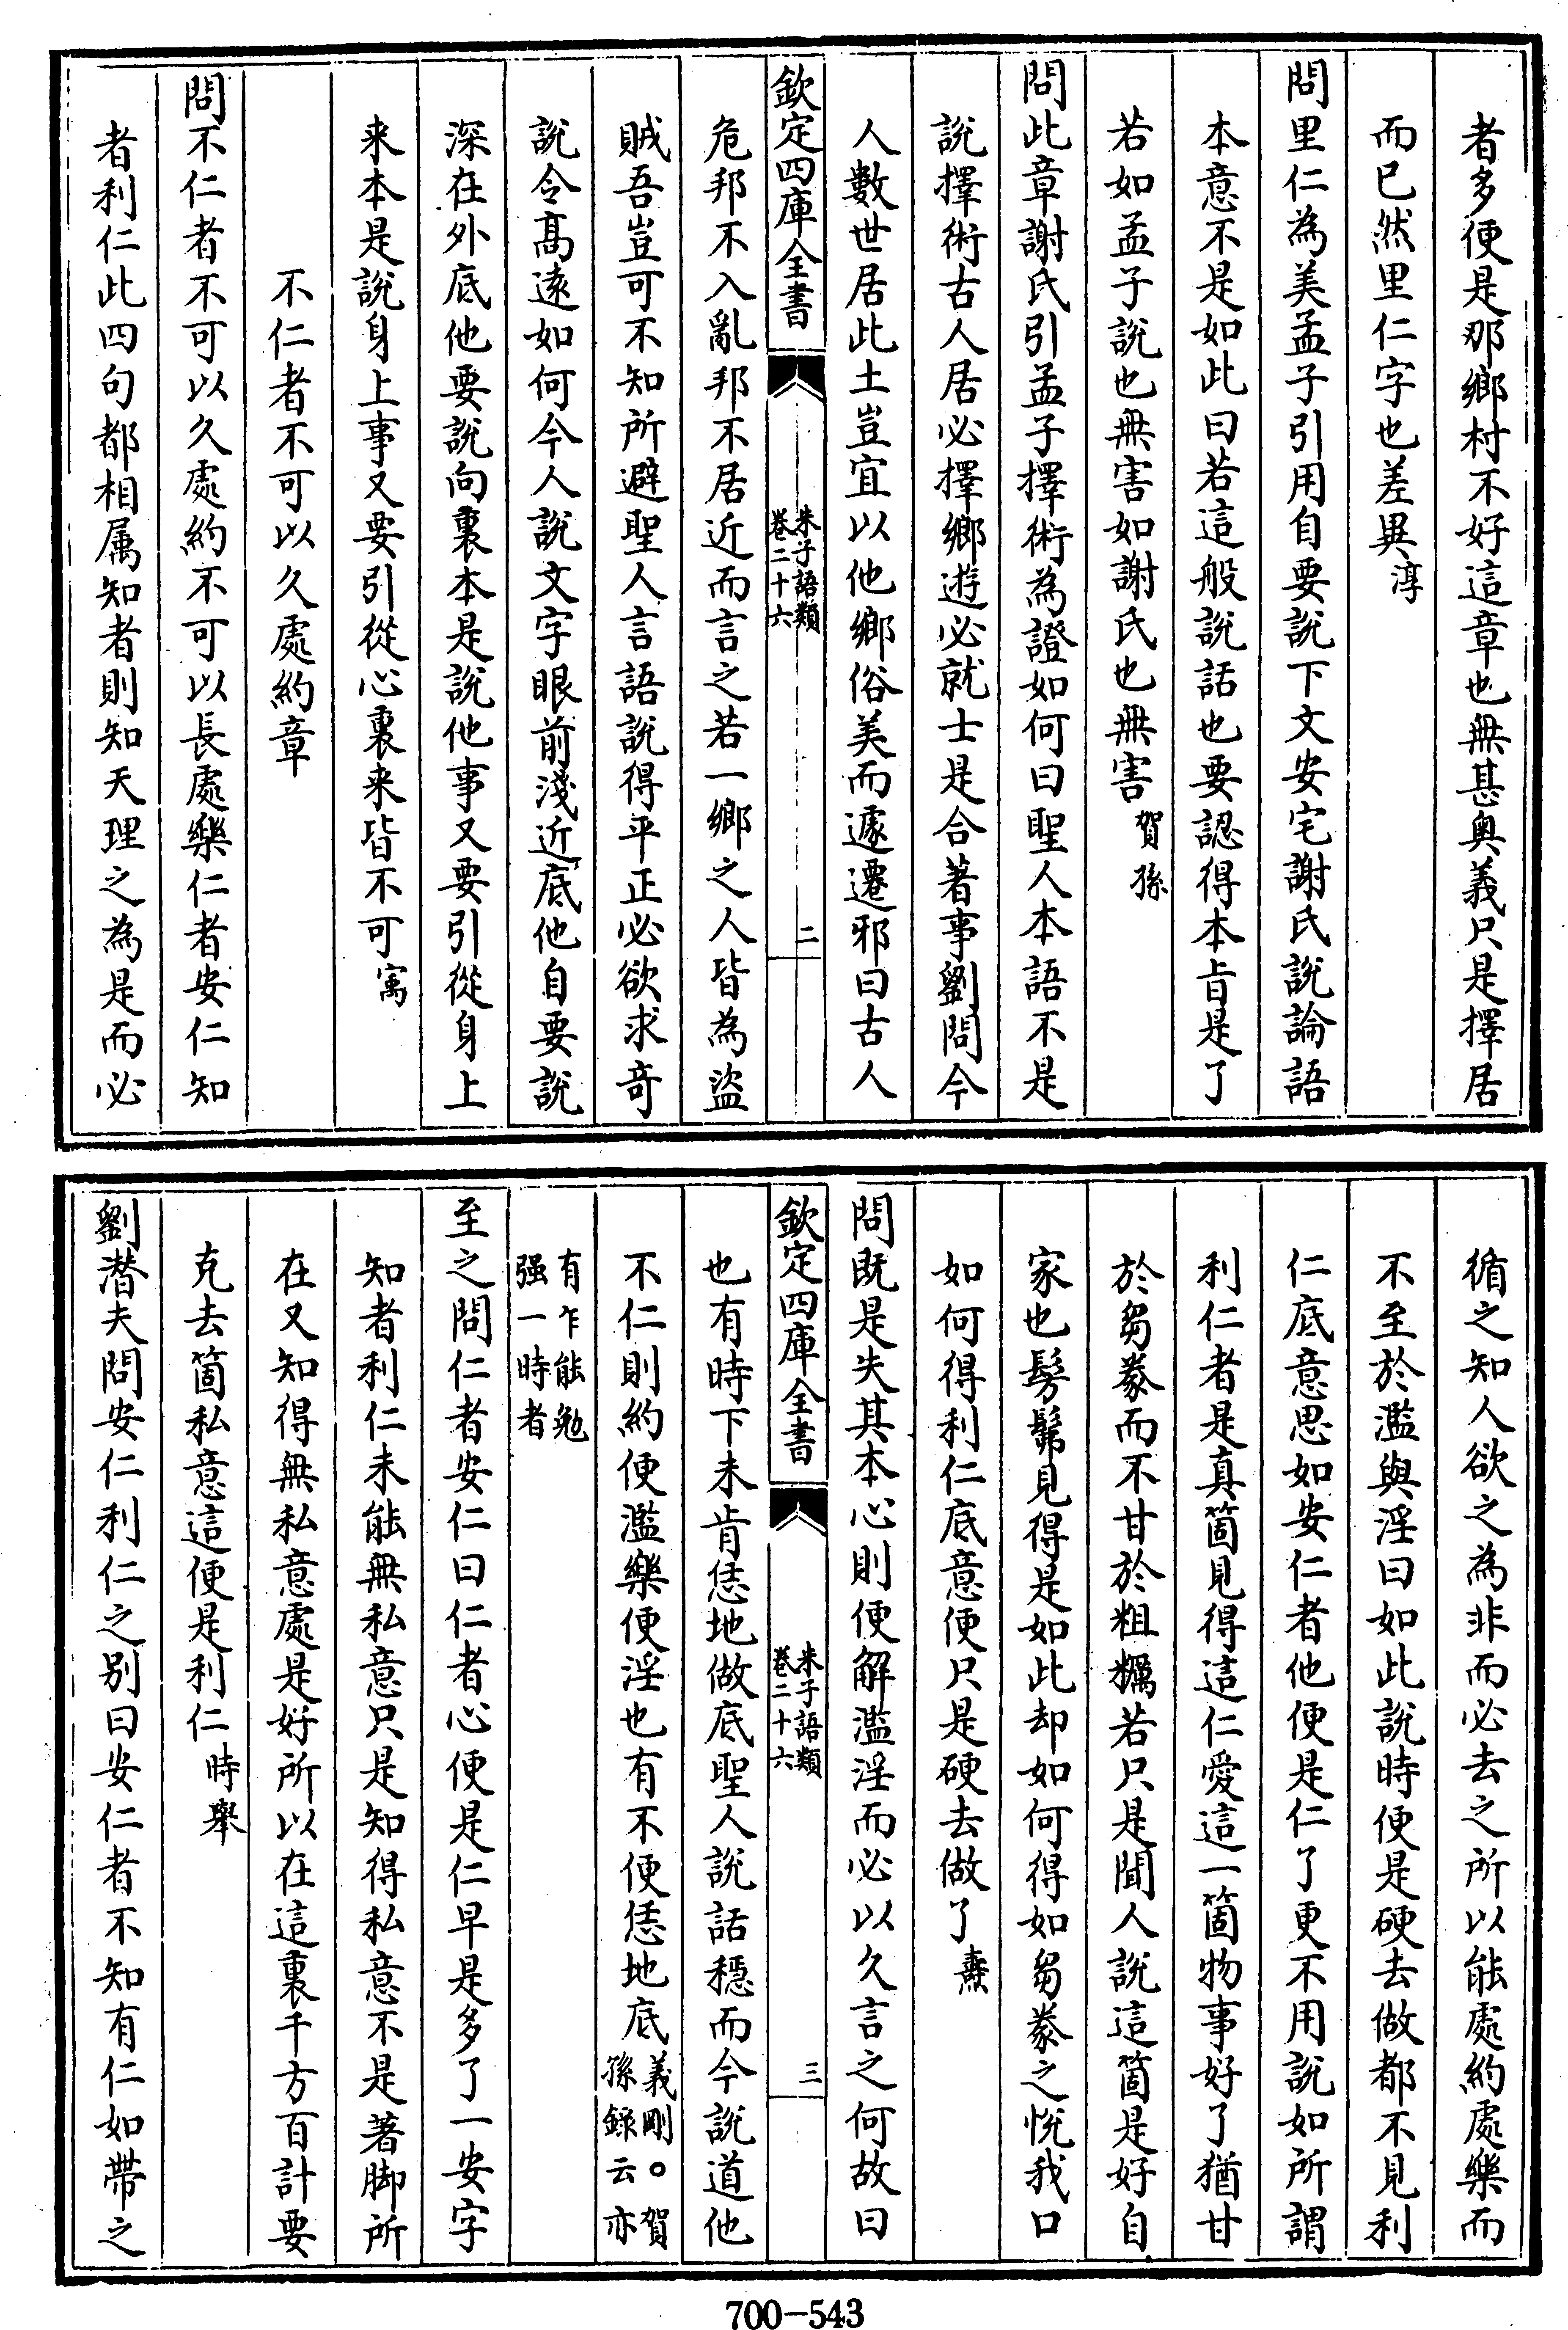 者多便是那鄉村不好這章也無甚奥義只是擇居
而已然里仁字也差異淳
問里仁為美孟子引用自要説下文安宅謝氏説論語
本意不是如此曰若這般説話也要認得本旨是了
若如孟子説也無害如謝氏也無害賀孫
問此章謝氏引孟子擇術為證如何曰聖人本語不是
説擇術古人居必擇鄉遊必就士是合著事劉問今
人數世居此土豈宜以他鄉俗美而遽遷邪曰古人
欽定四庫全書
朱子語類
卷二十六
二
危邦不入亂邦不居近而言之若一鄉之人皆為盜
賊吾豈可不知所避聖人言語説得平正必欲求奇
説令髙遠如何今人説文字眼前淺近底他自要説
深在外底他要説向裏本是説他事又要引從身上
来本是説身上事又要引從心裏来皆不可㝢
不仁者不可以久處約章
問不仁者不可以久處約不可以長處樂仁者安仁知
者利仁此四句都相属知者則知天理之為是而必
循之知人欲之為非而必去之所以能處約處樂而
不至於濫與淫曰如此説時便是硬去做都不見利
仁底意思如安仁者他便是仁了更不用説如所謂
利仁者是真箇見得這仁愛這一箇物事好了猶甘
於芻豢而不甘於粗糲若只是聞人説這箇是好自
家也髣髴見得是如此却如何得如芻豢之悦我口
如何得利仁底意便只是硬去做了燾
問既是失其本心則便解濫淫而必以久言之何故曰
欽定四庫全書
朱子語類
卷二十六
三
也有時下未肯恁地做底聖人説話穩而今説道他
不仁則約便濫樂便淫也有不便恁地底義剛○賀孫錄云亦
有乍能勉强一時者
至之問仁者安仁曰仁者心便是仁早是多了一安字
知者利仁未能無私意只是知得私意不是著脚所
在又知得無私意處是好所以在這裏千方百計要
克去箇私意這便是利仁時舉
劉潛夫問安仁利仁之别曰安仁者不知有仁如帶之
700-543